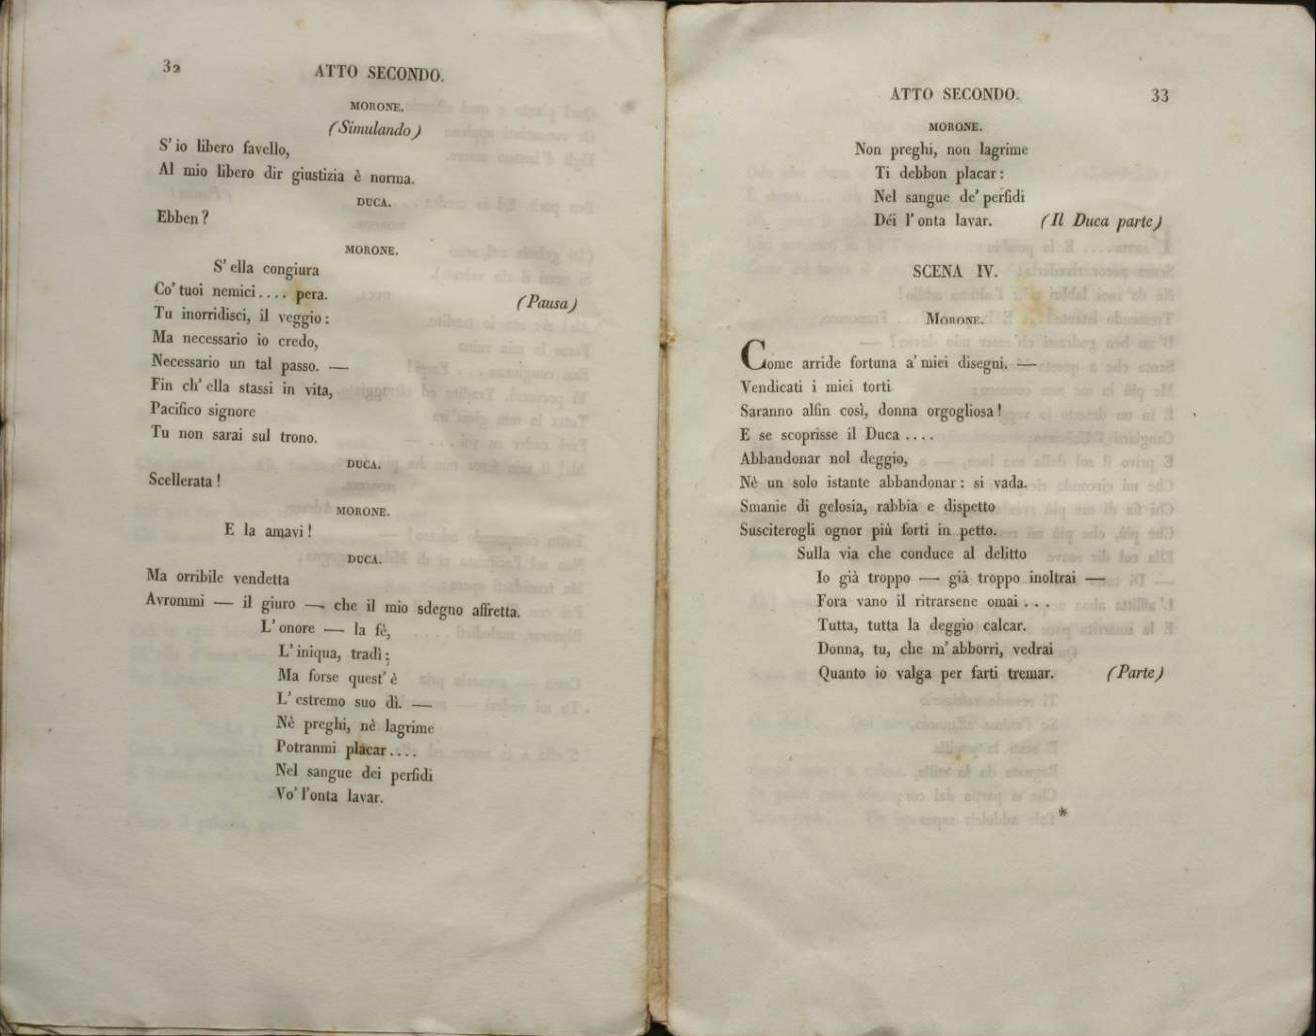 32
ATTO SECONDO.
MORONE.
(Simulando)
S' io libero favello,
Al mio libero dir giustizia è norma.
DUCA.
Ebben?
MORONE.
S' ella congiura
Co' tuoi nemici.... pera.
(Pausa)
Tu inorridisci, il veggio:
Ma necessario io credo,
Necessario un tal passo. —
Fin ch' ella stassi in vita,
Pacifico signore
Tu non sarai sul trono.
DUCA.
Scellerata!
MORONE.
E la amavi!
DUCA.
Ma orribile vendetta
Avrommi — il giuro — che il mio sdegno affretta.
L' onore — la fè,
L' iniqua, tradì;
Ma forse quest' è
L' estremo suo dì. —
Nè preghi, nè lagrime
Potranmi placar....
Nel sangue dei perfidi
Vo' l'onta lavar.
ATTO SECONDO.
33
MORONE.
Non preghi, non lagrime
Ti debbon placar:
Nel sangue de' perfidi
Déi l' onta lavar. (Il Duca parte)
SCENA IV.
MORONE.
Come arride fortuna a' miei disegni. —
Vendicati i miei torti
Saranno alfin così, donna orgogliosa!
E se scoprisse il Duca....
Abbandonar nol deggio,
Nè un solo istante abbandonar: si vada.
Smanie di gelosia, rabbia e dispetto
Susciterogli ognor più forti in petto.
Sulla via che conduce al delitto
Io già troppo — già troppo inoltrai —
Fora vano il ritrarsene omai...
Tutta, tutta la deggio calcar.
Donna, tu, che m' abborri, vedrai
Quanto io valga per farti tremar. (Parte)
*